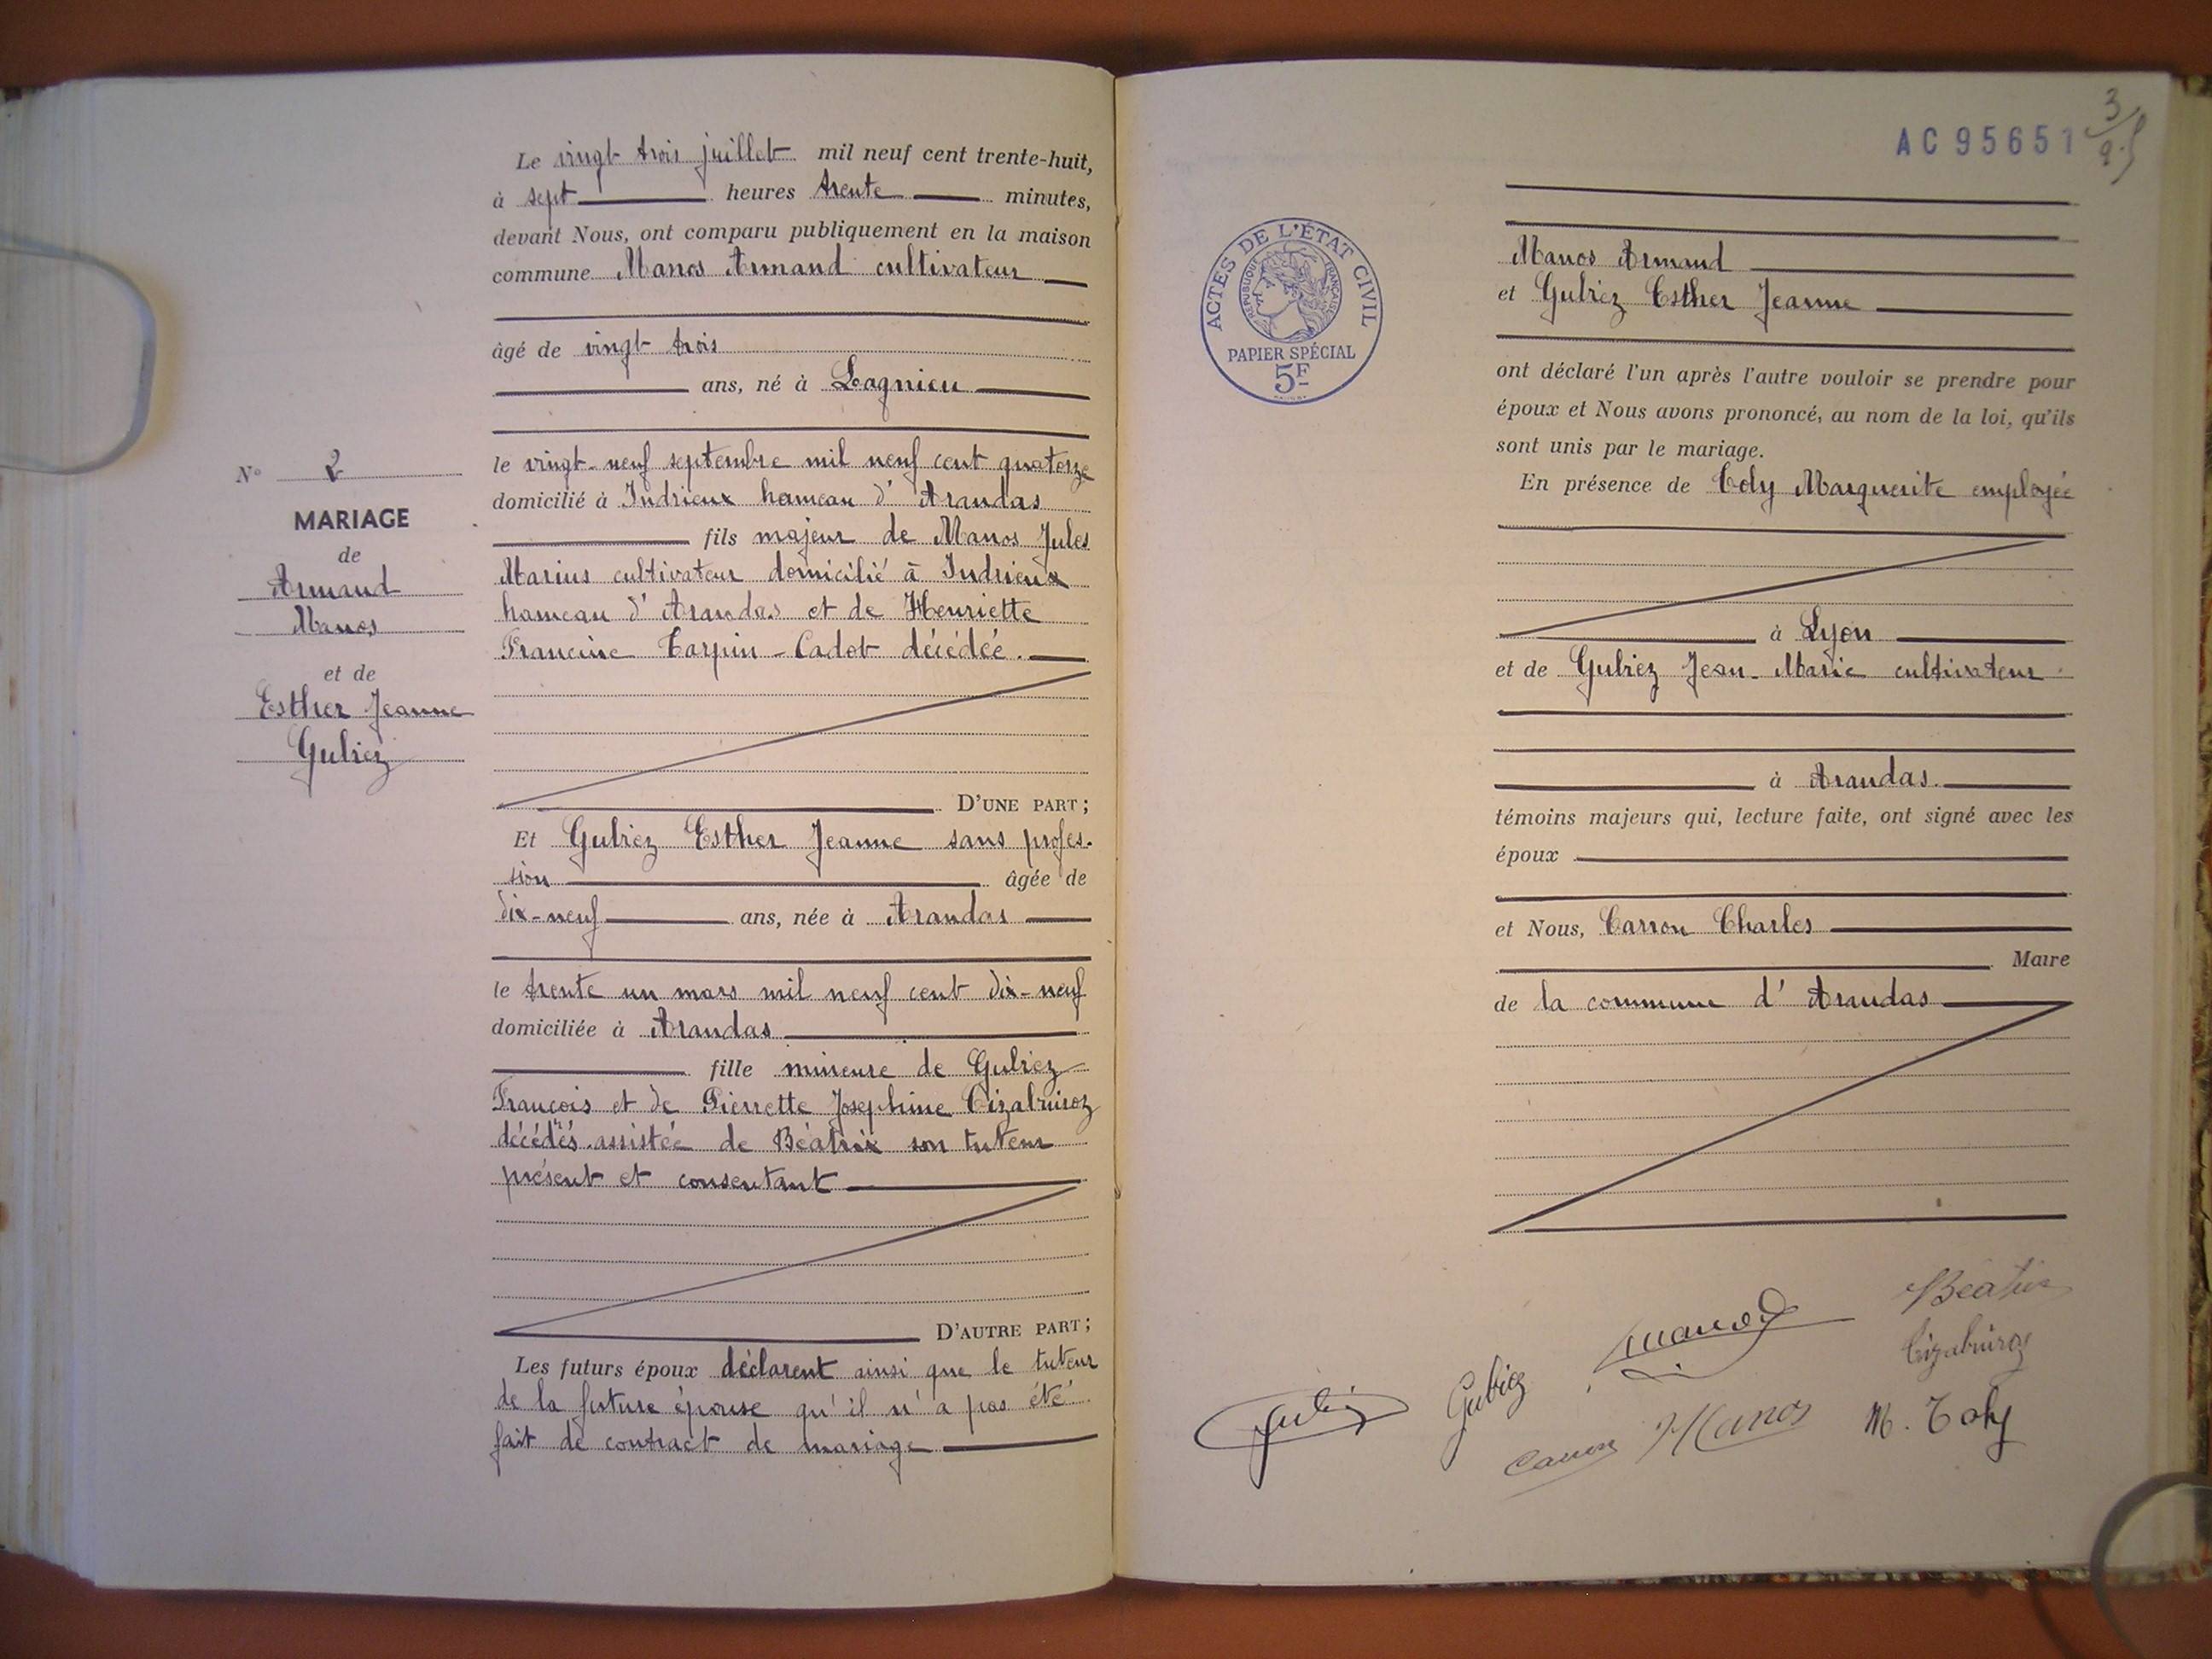 Le vingt trois juillet mil neuf cent trente-huit,
à sept heures trente minutes,
devant Nous, ont comparu publiquement en la maison
commune Manos Armand cultivateur
âgé de vingt trois
ans, né à Lagnieu
le vingt-neuf septembre mil neuf cent quatorze
domicilié à Indrieux hameau d'Arandas
fils majeur de Manos Jules
Marius cultivateur domicilié à Indrieux
hameau d'Arandas et de Henriette
Francine Tarpin-Cadot décédée.
D'UNE PART;
N° 2
MARIAGE
de
Armand
Manos
et de
Esther Jeanne
Gubiez
Et Gubiez Esther Jeanne sans profes-
sion âgée de
dix-neuf ans, née à Arandas
le trente un mars mil neuf cent dix-neuf
domiciliée à Arandas
fille mineure de Gubiez
François et de Pierrette Josephine Cizabuiroz
décédés assistée de Béatrix son tuteur
présent et consentant
D'AUTRE PART;
Les futurs époux déclarent ainsi que le tuteur
de la future épouse qu'il n'a pas été
fait de contract de mariage
AC 95651
3
ACTES DE L'ÉTAT CIVIL
RÉPUBLIQUE FRANÇAISE
PAPIER SPÉCIAL
5F
Manos Armand
et Gubiez Esther Jeanne
ont déclaré l'un après l'autre vouloir se prendre pour
époux et Nous avons prononcé, au nom de la loi, qu'ils
sont unis par le mariage.
En présence de Coly Marguerite employée
à Lyon
et de Gubiez Jean-Marie cultivateur
à Arandas.
témoins majeurs qui, lecture faite, ont signé avec les
époux
et Nous, Carron Charles
Maire
de la commune d'Arandas
Béatrix
Manos
Cizabuiroz
Gubiez
Gubiez
Carron
Manos
M. Coly